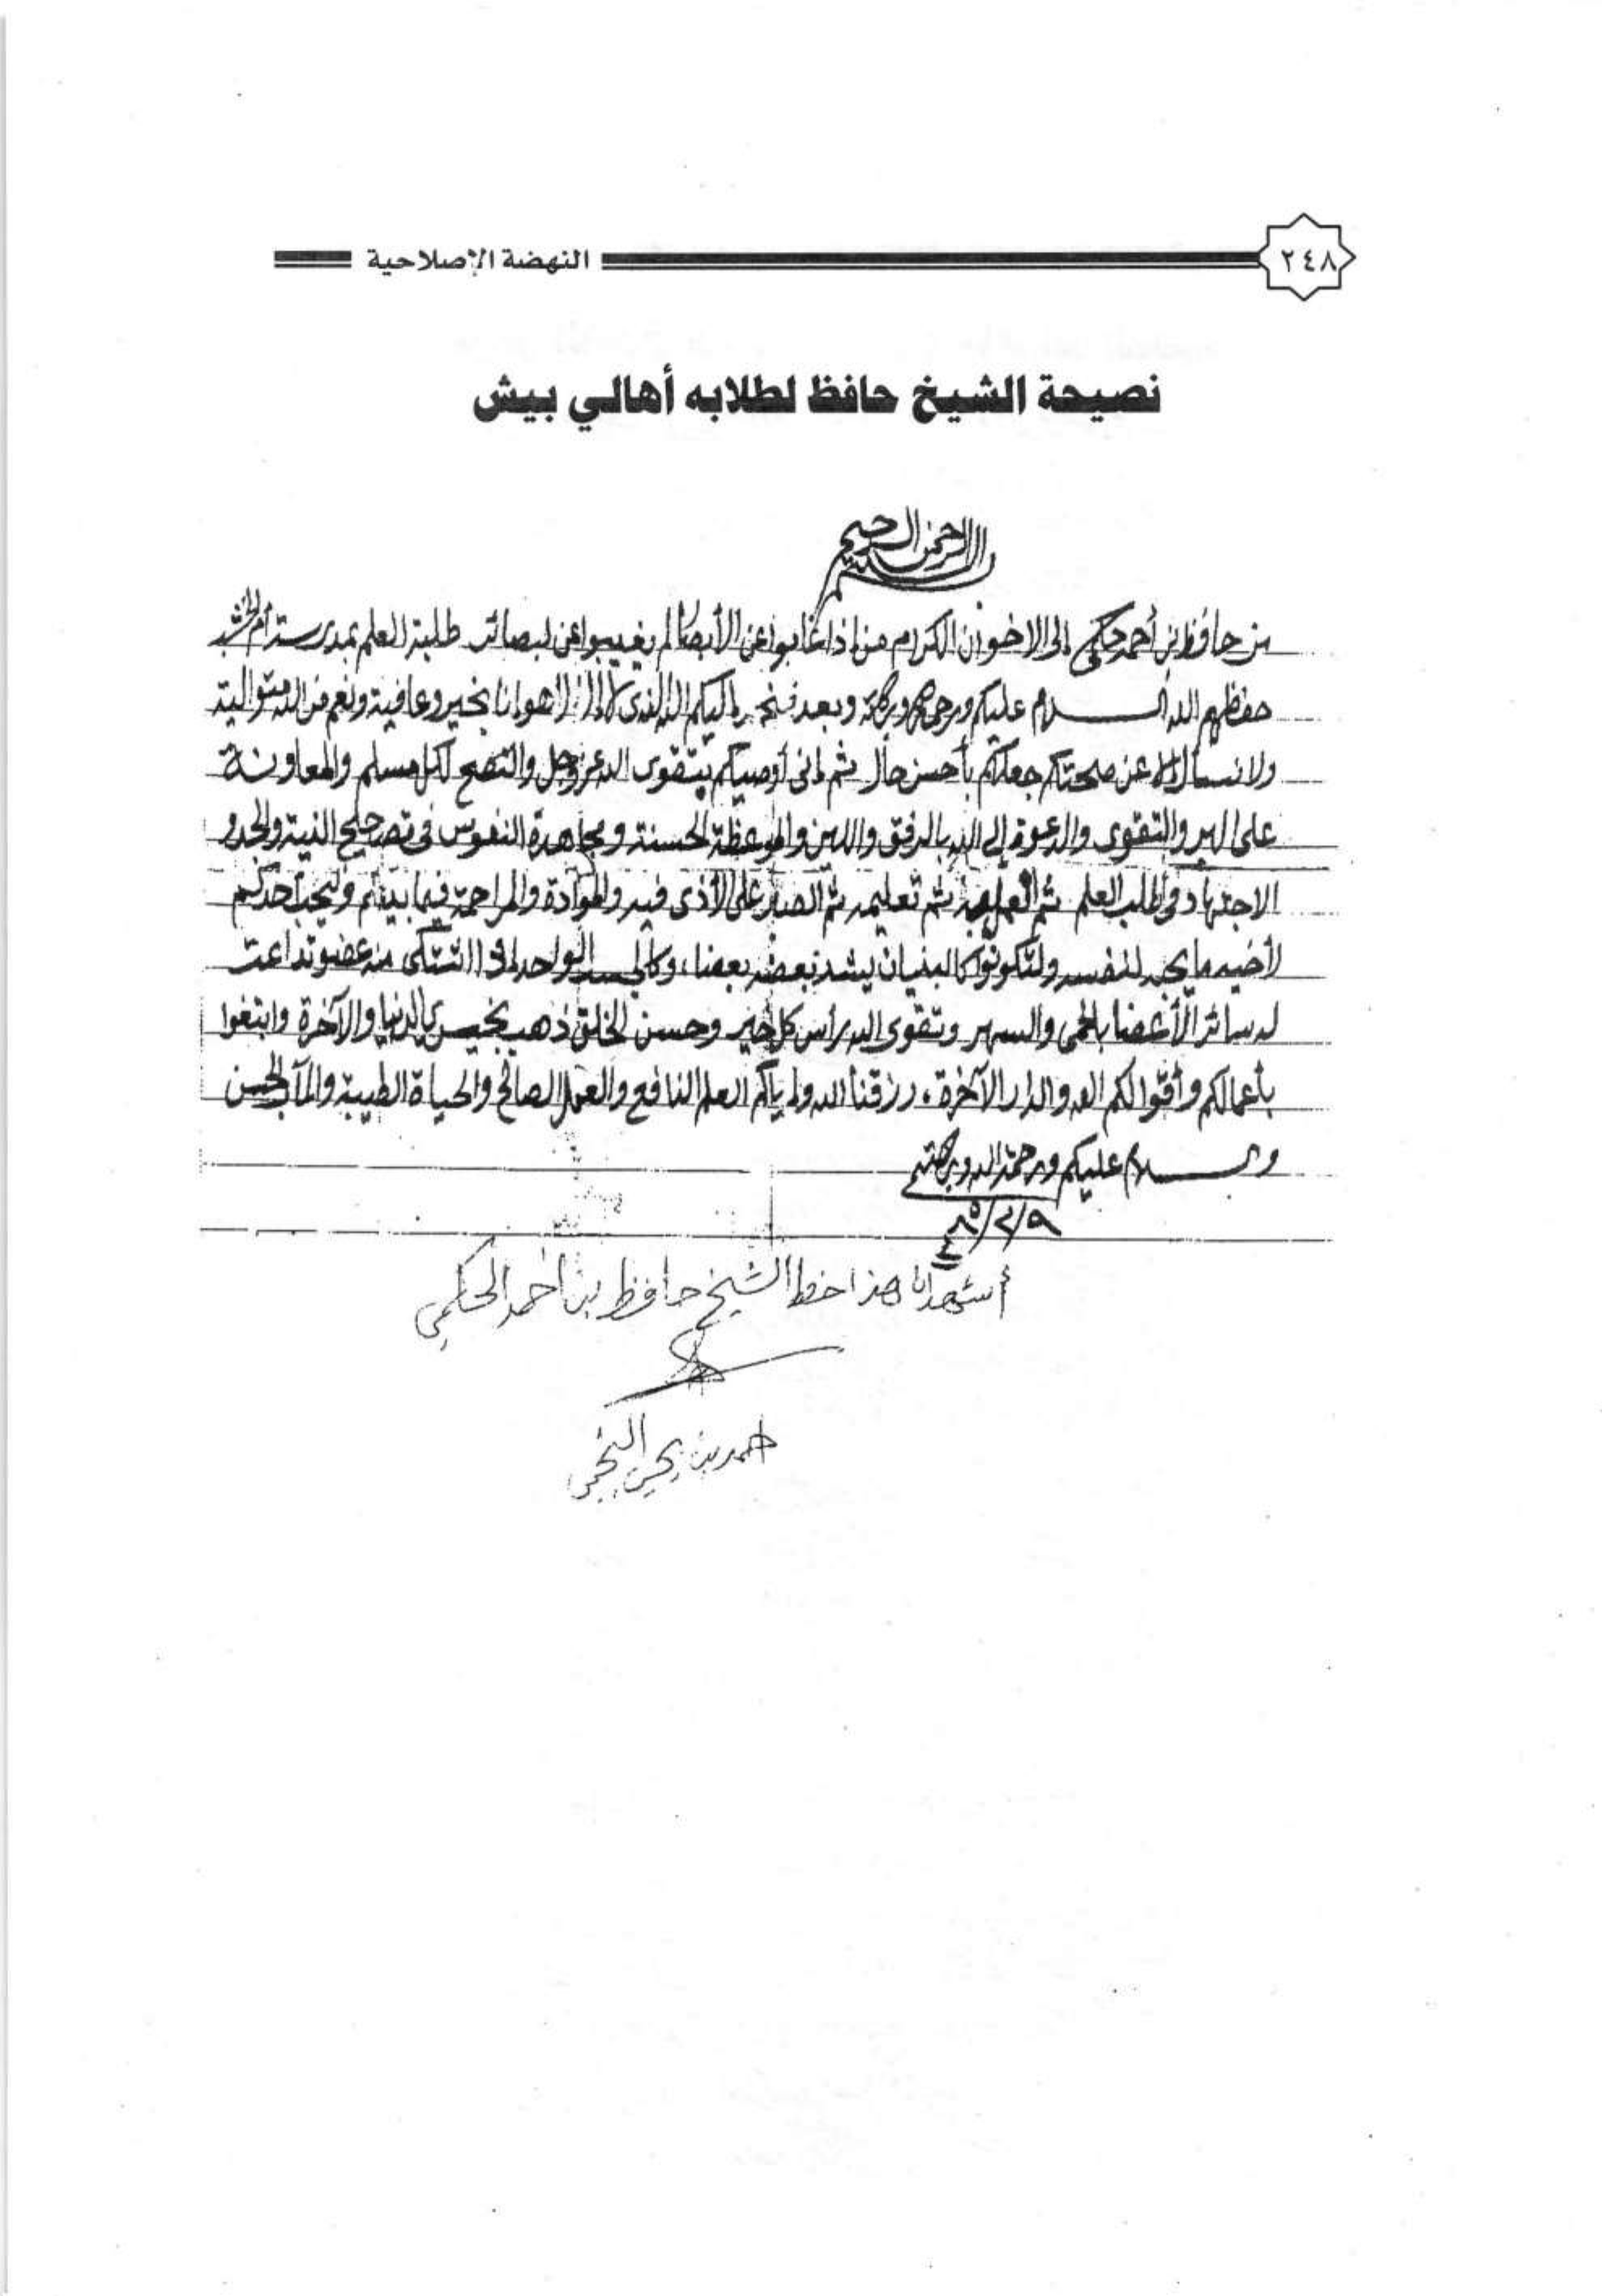 ٢٤٨ النهضة الإصلاحية
نصيحة الشيخ حافظ لطلابه أهالي بيش
بسم الله الرحمن الرحيم
من حافظ بن أحمد حكمي إلى الاخوان الكرام من إذا غابوا عن الأبصار لم يغيبوا عن البصائر طلبة العلم بمدرسة أم الخشب
حفظهم الله السلام عليكم ورحمة الله وبركاته وبعد فنحمد إليكم الله الذى لا إله إلا هو إنا بخير وعافية ونعم من الله متوالية
ولا نسأل إلا عن صحتكم جعلكم بأحسن حال ثم إنى أوصيكم بتقوى الله عز وجل والنصح لكل مسلم والمعاونة
على البر والتقوى والدعوة إلى الله بالرفق واللين والموعظة الحسنة ومجاهدة النفوس فى تصحيح النية والجد و
الاجتهاد فى طلب العلم ثم العمل به ثم تعليمه ثم الصبر على الأذى فيه والموادة والمراحمة فيما بينكم وليحب أحدكم
لأخيه ما يحبه لنفسه ولتكونوا كالبنيان يشد بعضه بعضا، وكالجسد الواحد إذا اشتكى منه عضو تداعت
له سائر الأعضا بالحمى والسهر وتقوى الله رأس كل خير وحسن الخلق ذهب بخيرى الدنيا والآخرة وابتغوا
بأعمالكم وأقوالكم الله والدار الآخرة، رزقنا الله وإياكم العلم النافع والعمل الصالح والحياة الطيبة والمآل الحسن
والسلام عليكم ورحمة الله وبركاته
أشهد أن هذا خط الشيخ حافظ بن أحمد الحكمي
أحمد بن يحيى النجمي